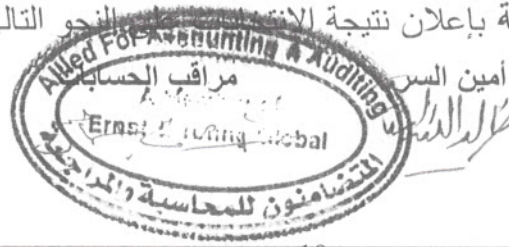 ة بإعلان نتيجة الانتخابات على النحو التالي
أمين السر مراقب الحسابات
Allied For Accounting & Auditing
A Member of
Ernst & Young Global
المتضامنون للمحاسبة والمراجعة